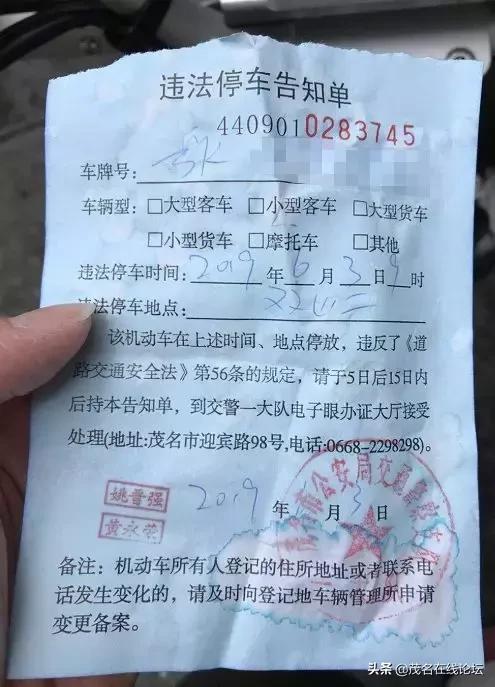 违法停车告知单
4409010283745
车牌号: 粤K
车辆型: □大型客车 □小型客车 □大型货车
□小型货车 □摩托车 □其他
违法停车时间: 2019 年 6 月 3 日 9 时
违法停车地点:
该机动车在上述时间、地点停放,违反了《道
路交通安全法》第56条的规定,请于5日后15日内
后持本告知单,到交警一大队电子眼办证大厅接受
处理(地址:茂名市迎宾路98号,电话:0668-2298298)。
姚晋强
黄永荣
2019 年 月 3 日
市公安局交通
备注:机动车所有人登记的住所地址或者联系电
话发生变化的,请及时向登记地车辆管理所申请
变更备案。
头条 @茂名在线论坛